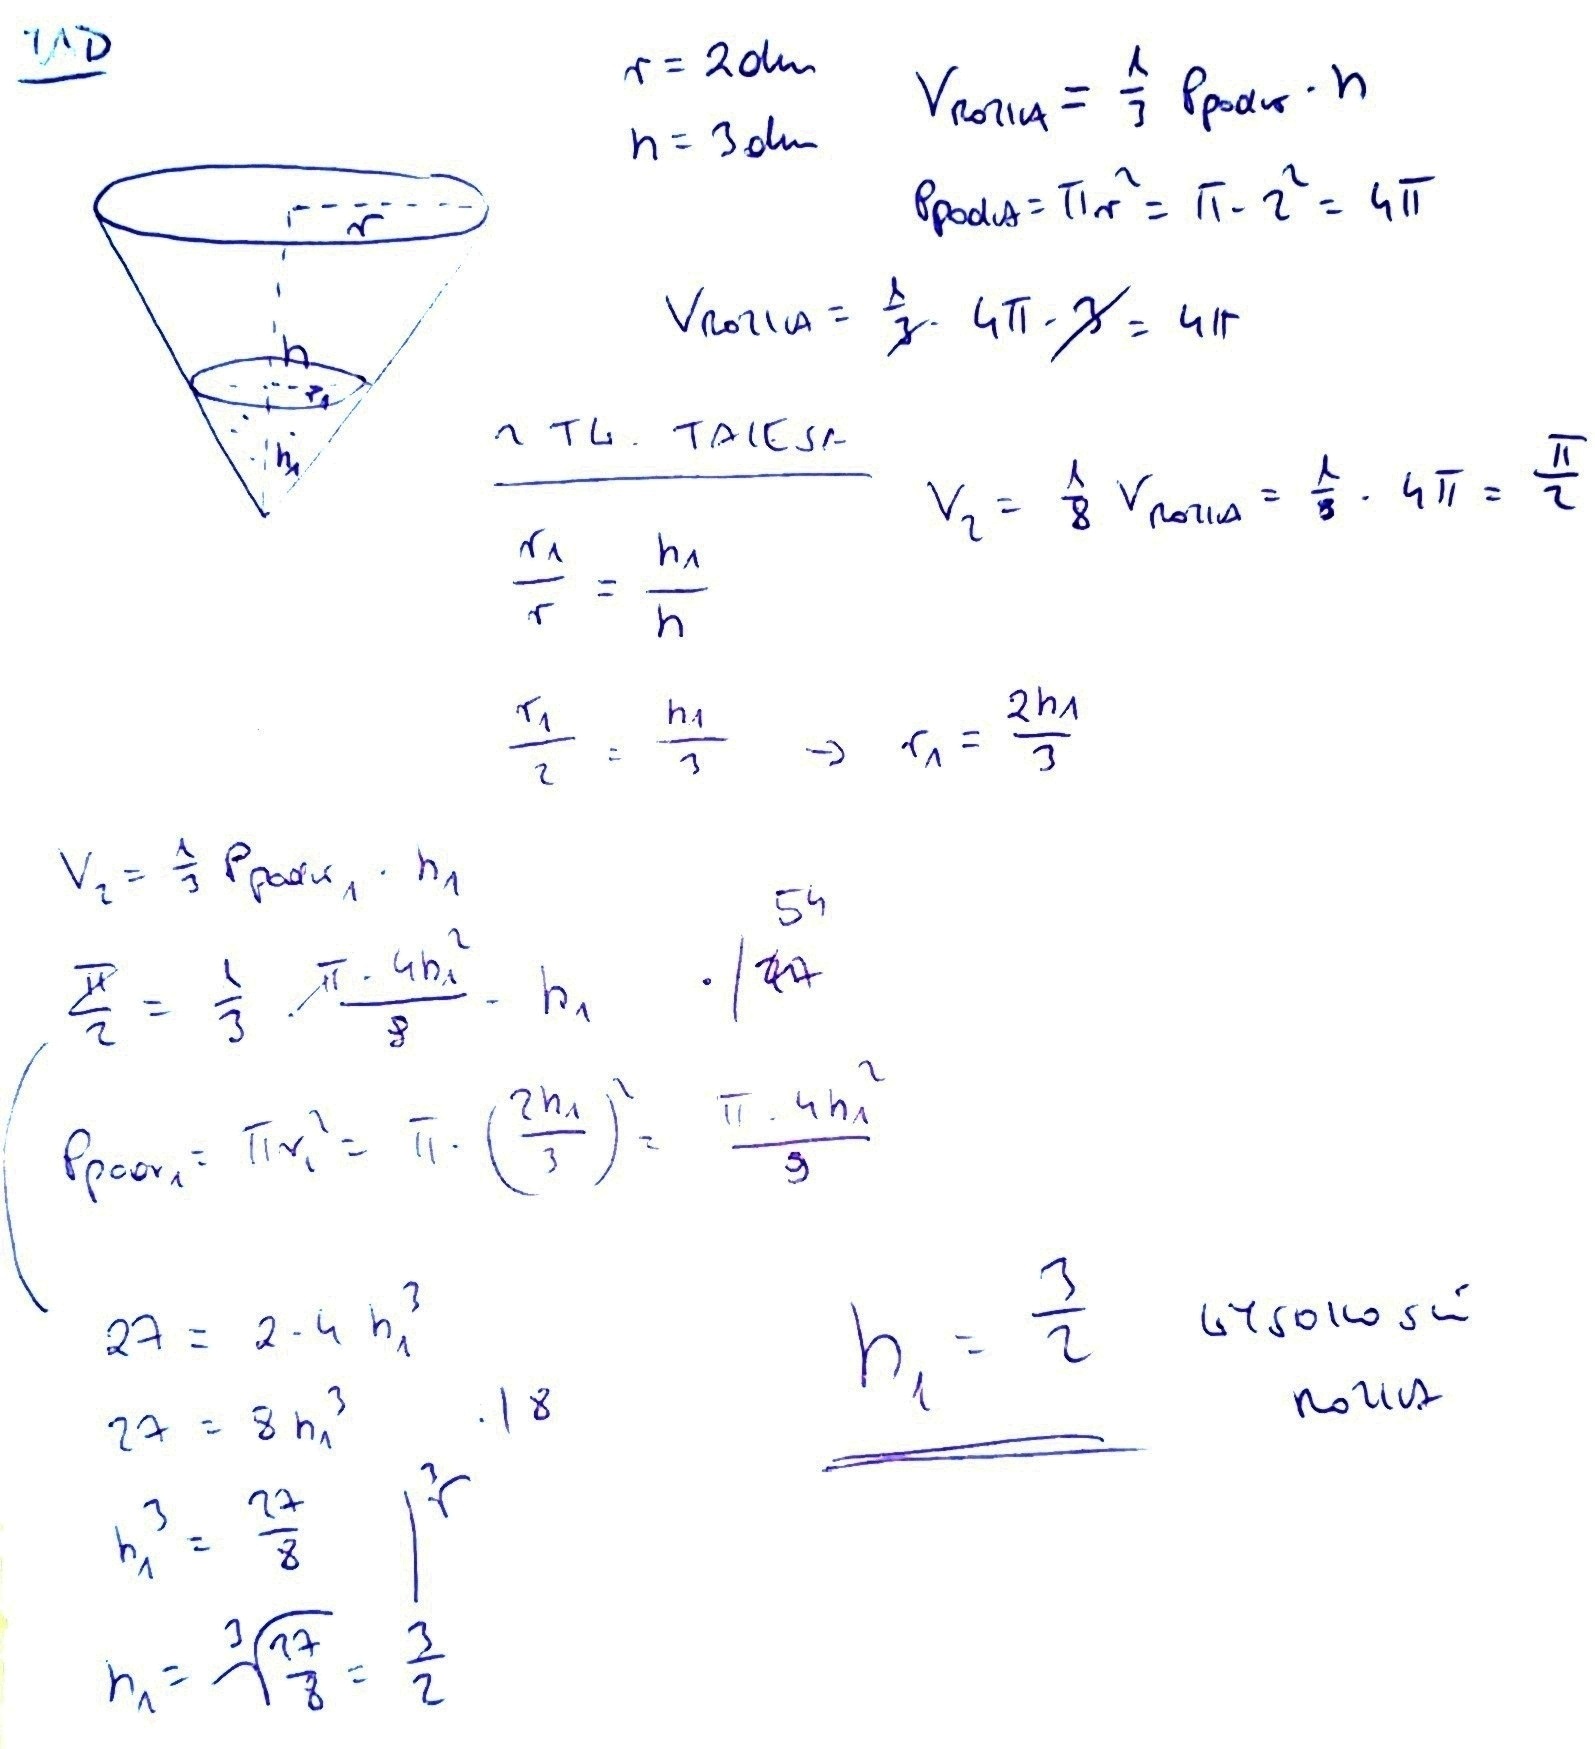 ZAD
r = 2dm
h = 3dm
V ROŻKA = 1/3 Ppodst · h
Ppodst = πr² = π · 2² = 4π
V ROŻKA = 1/3 · 4π · 3 = 4π
r
h
r₁
h₁
z TW. TALESA
V₂ = 1/8 V ROŻKA = 1/8 · 4π = π/2
r₁/r = h₁/h
r₁/2 = h₁/3 → r₁ = 2h₁/3
V₂ = 1/3 Ppodst₁ · h₁
π/2 = 1/3 · π · 4h₁²/9 · h₁ ·/ 54
Ppodst₁ = πr₁² = π · (2h₁/3)² = π · 4h₁²/9
27 = 2 · 4 h₁³
27 = 8h₁³ · | 8
h₁³ = 27/8 | ³√
h₁ = ³√27/8 = 3/2
h₁ = 3/2 WYSOKOŚĆ
ROŻKA